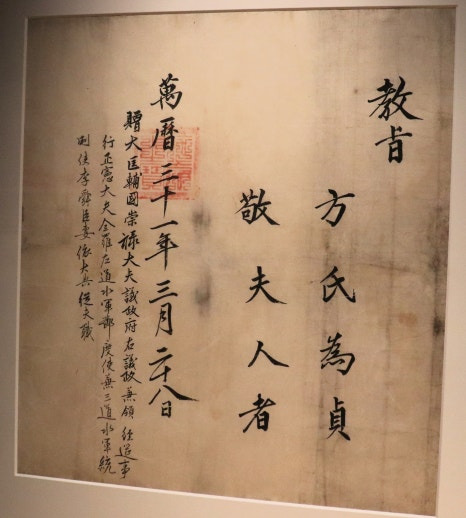 教旨
方氏為貞
敬夫人者
萬曆三十一年三月二十八日
贈大匡輔國崇祿大夫議政府右議政兼領 經筵事
行正憲大夫全羅左道水軍節度使兼三道水軍統
制使李舜臣妻依大典從夫職